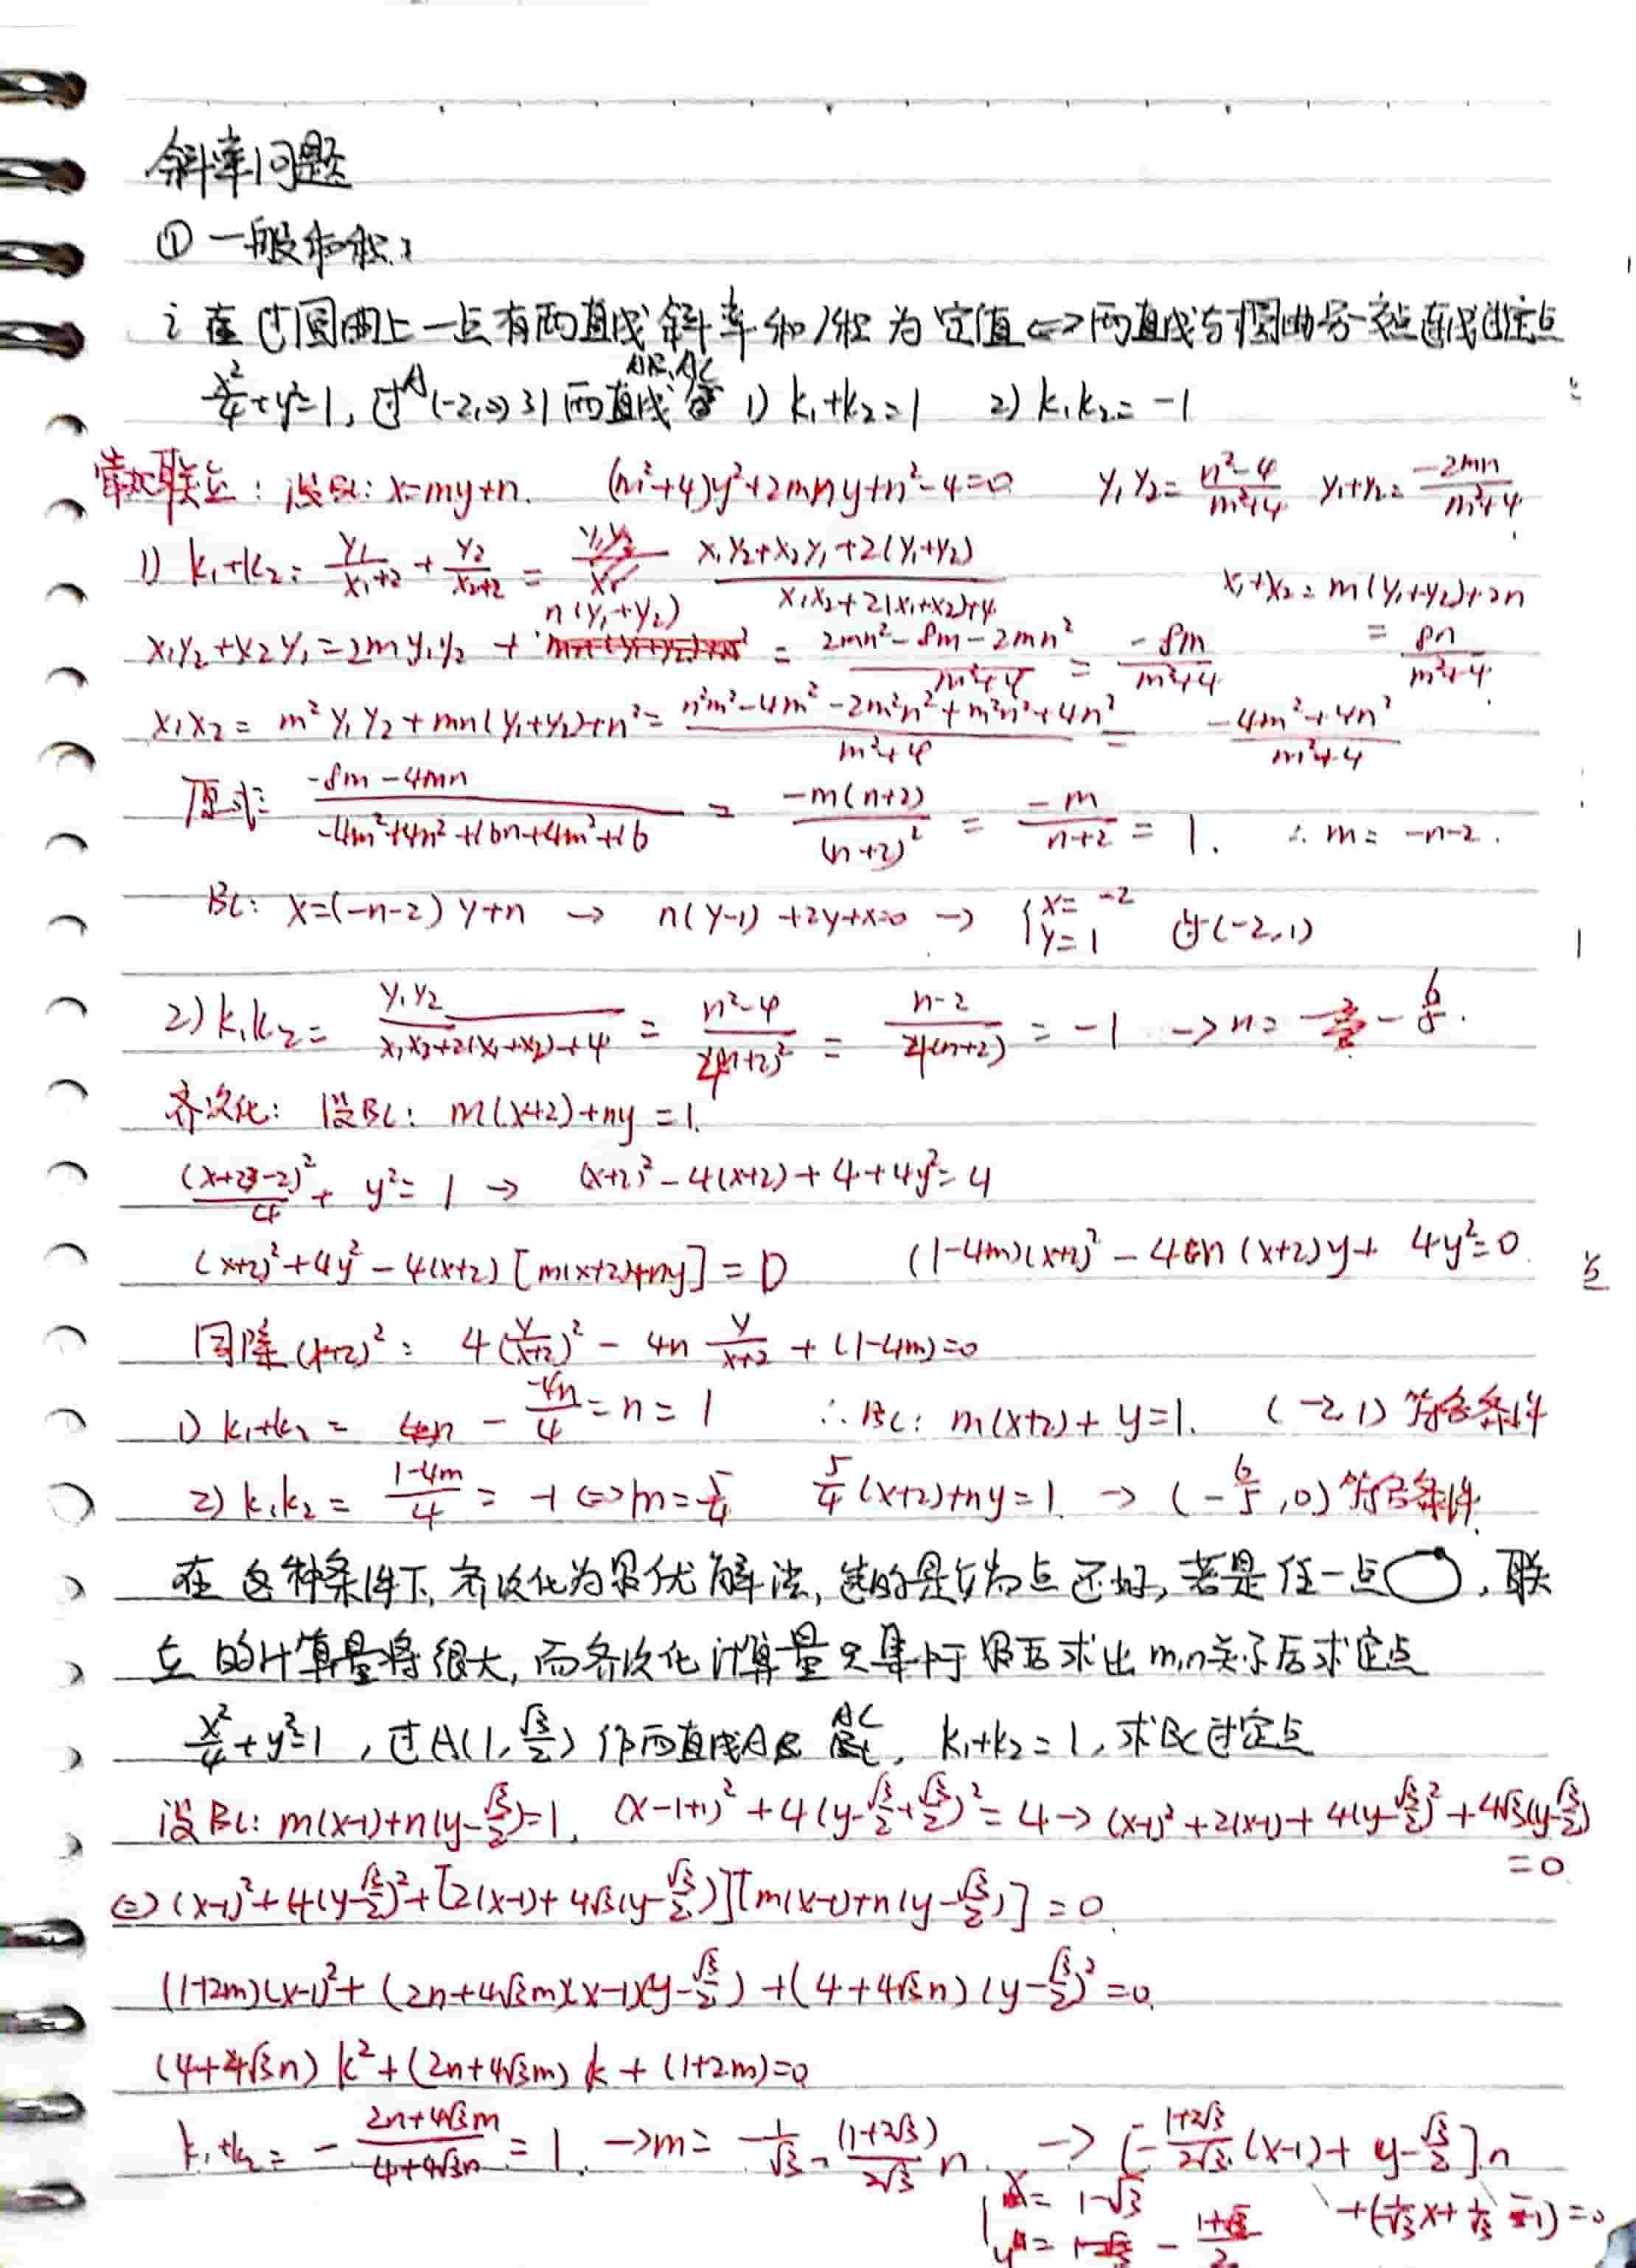 斜率问题
① 一般和积:
i 在过圆曲上一点有两直线斜率和/积为定值⇔两直线与圆曲另一交点连线过定点
x²/4+y²=1, 过A(-2,0)引两直线AB,AC 1) k₁+k₂=1 2) k₁k₂=-1
常规联立: 设BC: x=my+n. (m²+4)y²+2mny+n²-4=0 y₁y₂=(n²-4)/(m²+4) y₁+y₂=-2mn/(m²+4)
1) k₁+k₂= y₁/(x₁+2) + y₂/(x₂+2) = (x₁y₂+x₂y₁+2(y₁+y₂))/(x₁x₂+2(x₁+x₂)+4) x₁+x₂=m(y₁+y₂)+2n
x₁y₂+x₂y₁=2my₁y₂+n(y₁+y₂) = (2mn²-8m-2mn²)/(m²+4) = -8m/(m²+4) = 8n/(m²+4)
x₁x₂= m²y₁y₂+mn(y₁+y₂)+n²= (n²m²-4m²-2m²n²+m²n²+4n²)/(m²+4) = (-4m²+4n²)/(m²+4)
原式= (-8m-4mn)/(-4m²+4n²+16n+4m²+16) = -m(n+2)/(n+2)² = -m/(n+2) = 1. ∴ m= -n-2.
BC: x=(-n-2)y+n → n(y-1)+2y+x=0 → {x=-2 y=1 过(-2,1)
2) k₁k₂= y₁y₂/(x₁x₂+2(x₁+x₂)+4) = (n²-4)/(4(n+2)²) = (n-2)/(4(n+2)) = -1 → n= -6/5.
齐次化: 设BC: m(x+2)+ny=1.
(x+2-2)²/4 + y²=1 → (x+2)²-4(x+2)+4+4y²=4
(x+2)²+4y²-4(x+2)[m(x+2)+ny]=0 (1-4m)(x+2)²-4n(x+2)y+4y²=0.
同除(x+2)²: 4(y/(x+2))² - 4n y/(x+2) + (1-4m)=0
1) k₁+k₂= - -4n/4 = n = 1 ∴BC: m(x+2)+y=1. (-2,1)符合条件
2) k₁k₂= (1-4m)/4 = -1 ⇔ m=5/4 5/4(x+2)+ny=1. → (-6/5,0)符合条件.
在这种条件下,齐次化为最优解法,选的是端点还好,若是任一点,联
立的计算量将很大,而齐次化计算量只集中于最后求出m,n关系后求定点
x²/4+y²=1, 过A(1,√3/2)作两直线AB AC, k₁+k₂=1,求BC过定点
设BC: m(x-1)+n(y-√3/2)=1, (x-1+1)²+4(y-√3/2+√3/2)²=4→(x-1)²+2(x-1)+4(y-√3/2)²+4√3(y-√3/2)
=0
⇔(x-1)²+4(y-√3/2)²+[2(x-1)+4√3(y-√3/2)][m(x-1)+n(y-√3/2)]=0.
(1+2m)(x-1)²+(2n+4√3m)(x-1)(y-√3/2)+(4+4√3n)(y-√3/2)²=0.
(4+4√3n)k²+(2n+4√3m)k+(1+2m)=0
k₁+k₂= -(2n+4√3m)/(4+4√3n)=1. →m= -1/√3-(1+2√3)/(2√3) n. →[-(1+2√3)/(2√3)(x-1)+y-√3/2]n
+(-1/√3x+1/√3-1)=0
{x=1-√3